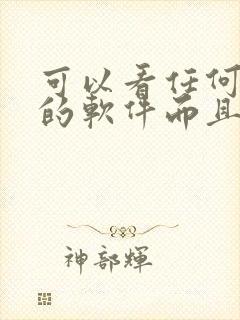 可以看任何
的軟件而且
神部輝